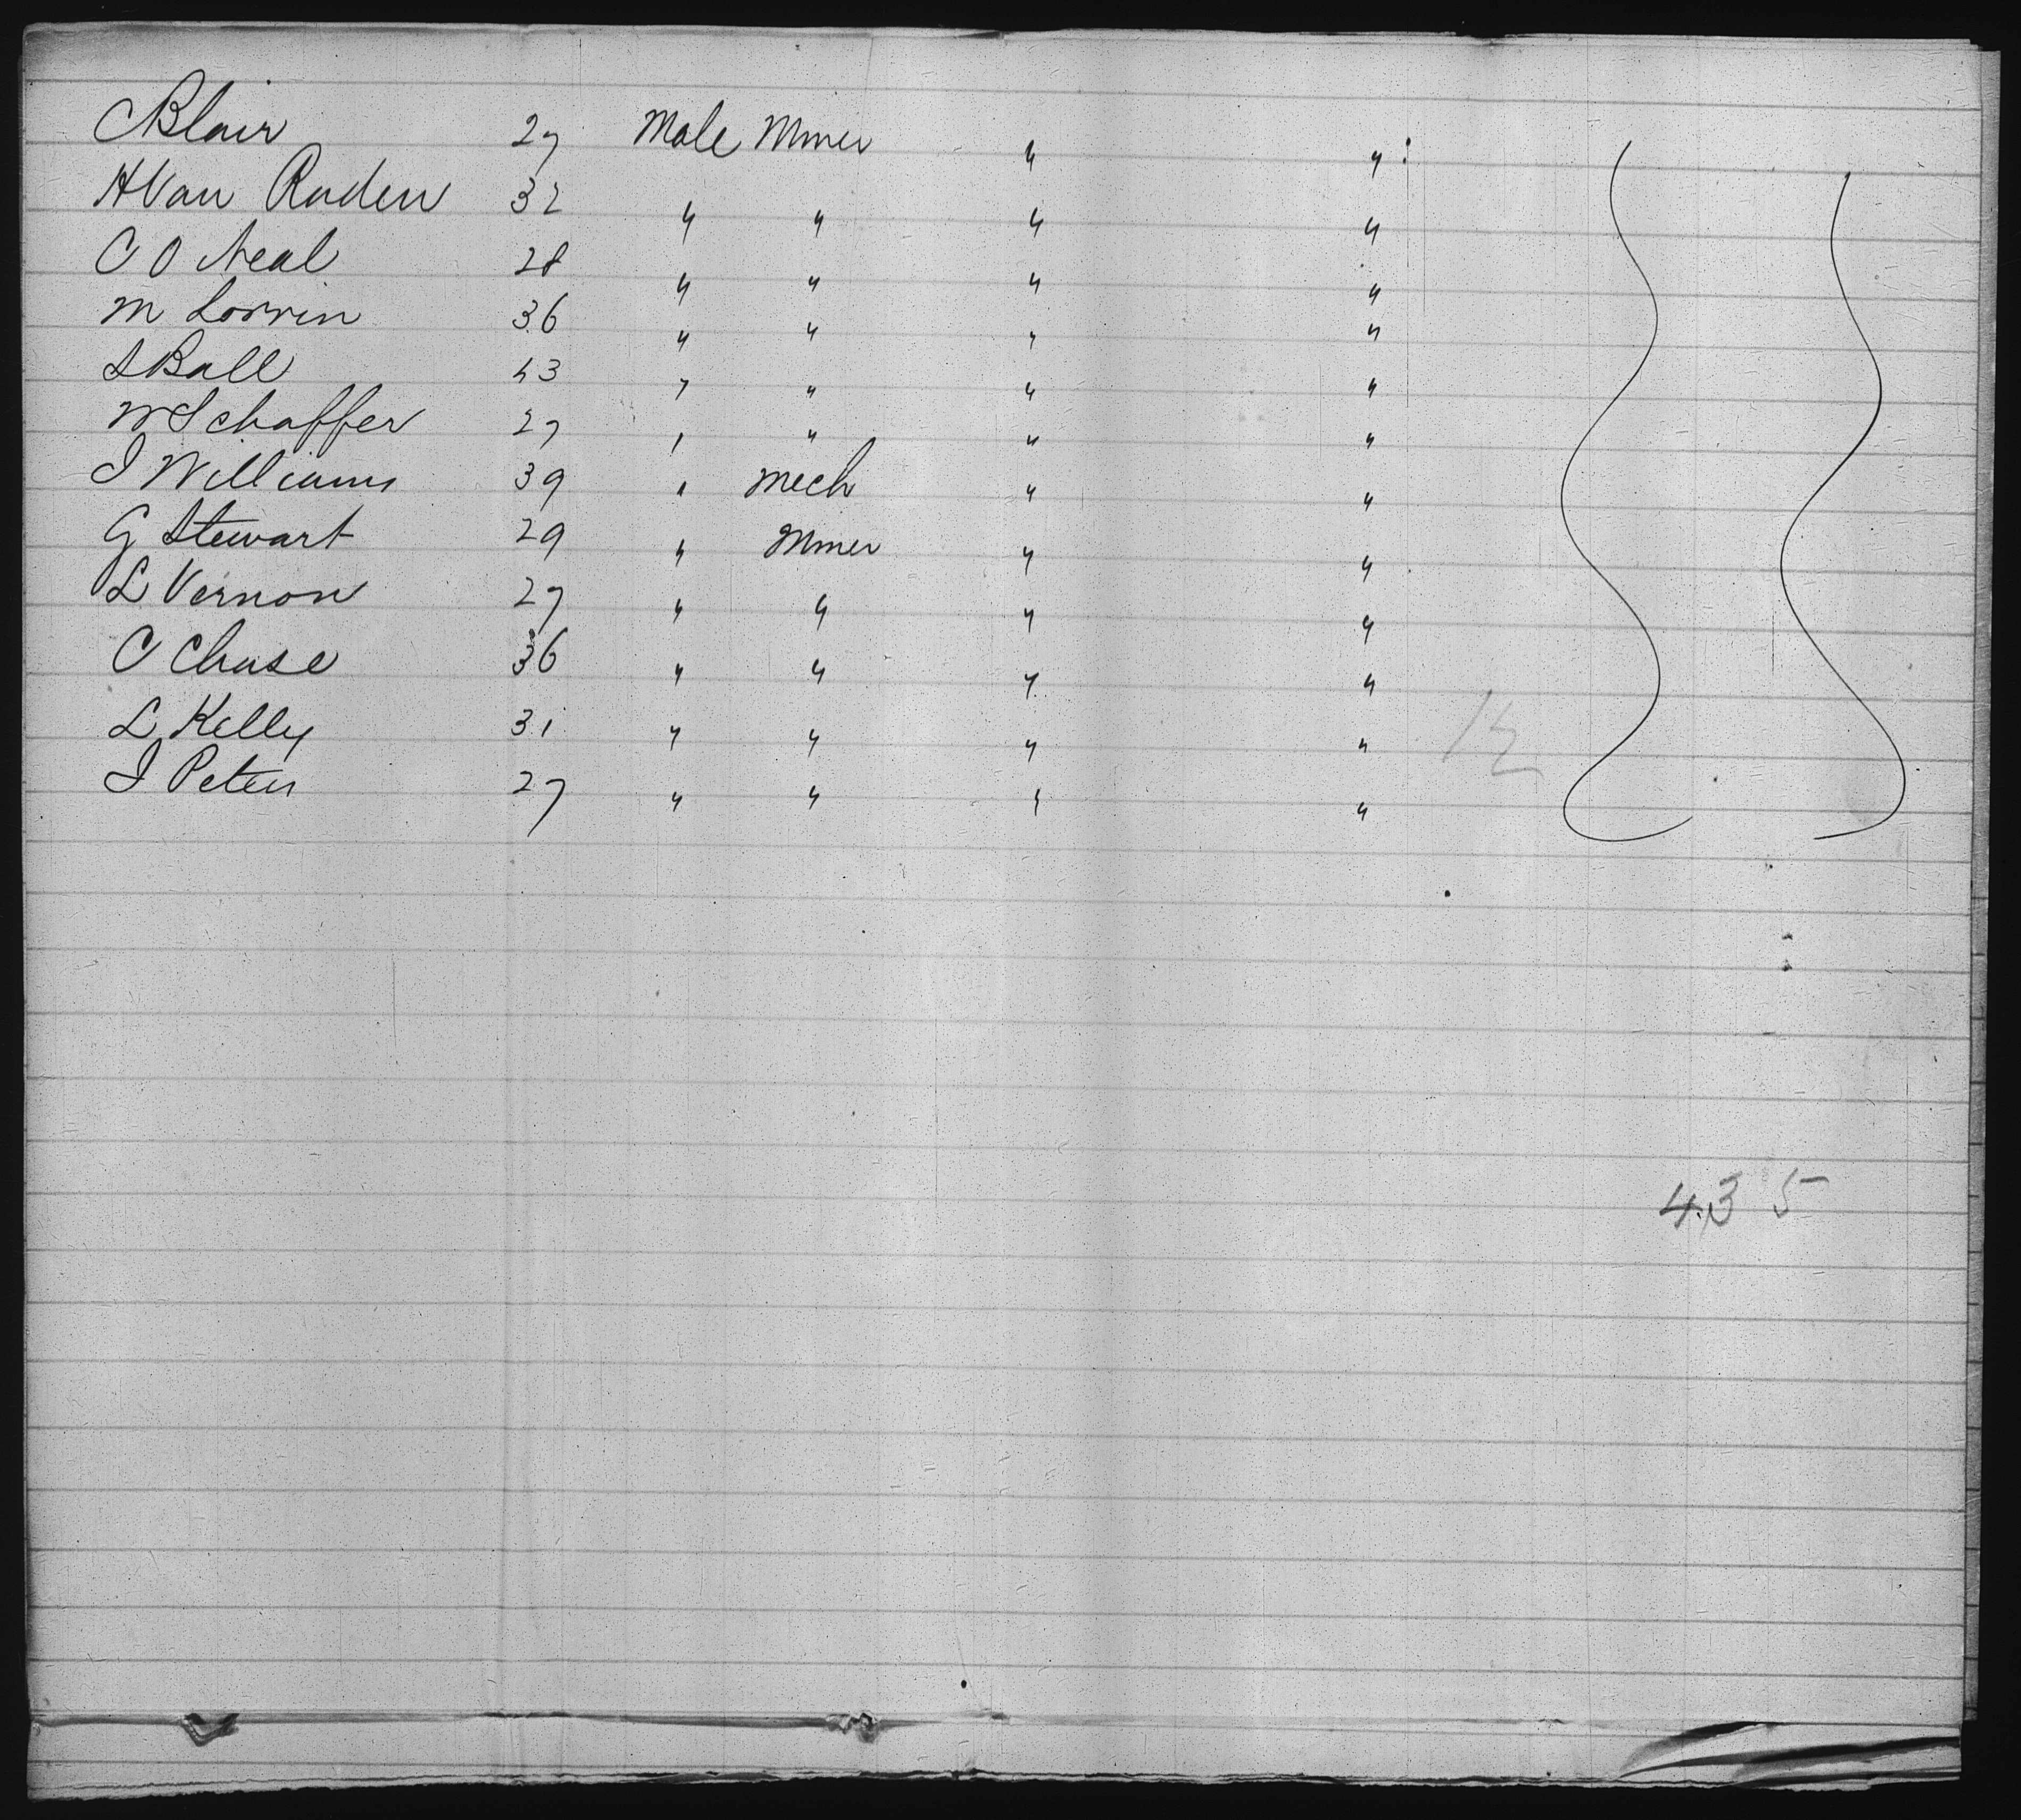 C Blair 27 Male Miner " "
H Van Ruden 32 " " " "
C O Neal 28 " " " "
M Lorrin 36 " " " "
S Ball 43 " " " "
W Schaffer 27 " " " "
I Williams 39 " Mech " "
G Stewart 29 " Miner " "
L Vernon 27 " " " "
C Chase 36 " " " "
L Kelly 31 " " " "
I Peters 27 " " " "
12
435